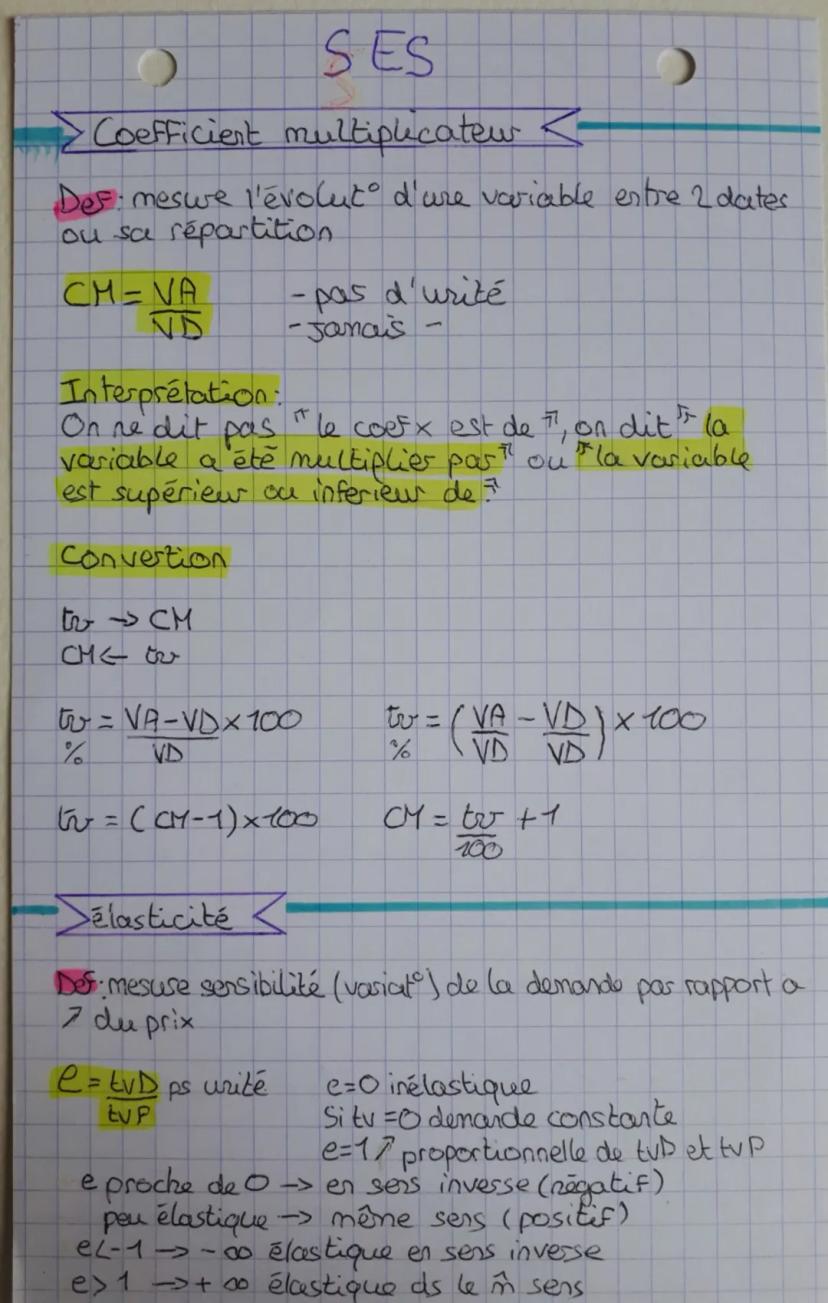 SES
Coefficient multiplicateur
Def: mesure l'évolut° d'une variable entre 2 dates
ou sa répartition
CM = VA/VD - pas d'unité
- jamais -
Interprétation:
On ne dit pas "le coef x est de", on dit "la
variable a été multiplier par" ou "la variable
est supérieur ou inferieur de"
Convertion
tv → CM
CM ← tv
tv % = (VA-VD)/VD × 100 tv % = (VA/VD - VD/VD) × 100
tv = (CM-1)×100 CM = tv/100 + 1
élasticité
Def: mesure sensibilité (variat°) de la demande par rapport a
↗ du prix
e = tvD/tvP ps unité e=0 inélastique
Si tv =0 demande constante
e=1 ↗ proportionnelle de tvD et tvP
e proche de 0 → en sens inverse (négatif)
peu élastique → même sens (positif)
e<-1 → -∞ élastique en sens inverse
e>1 → +∞ élastique ds le m̂ sens